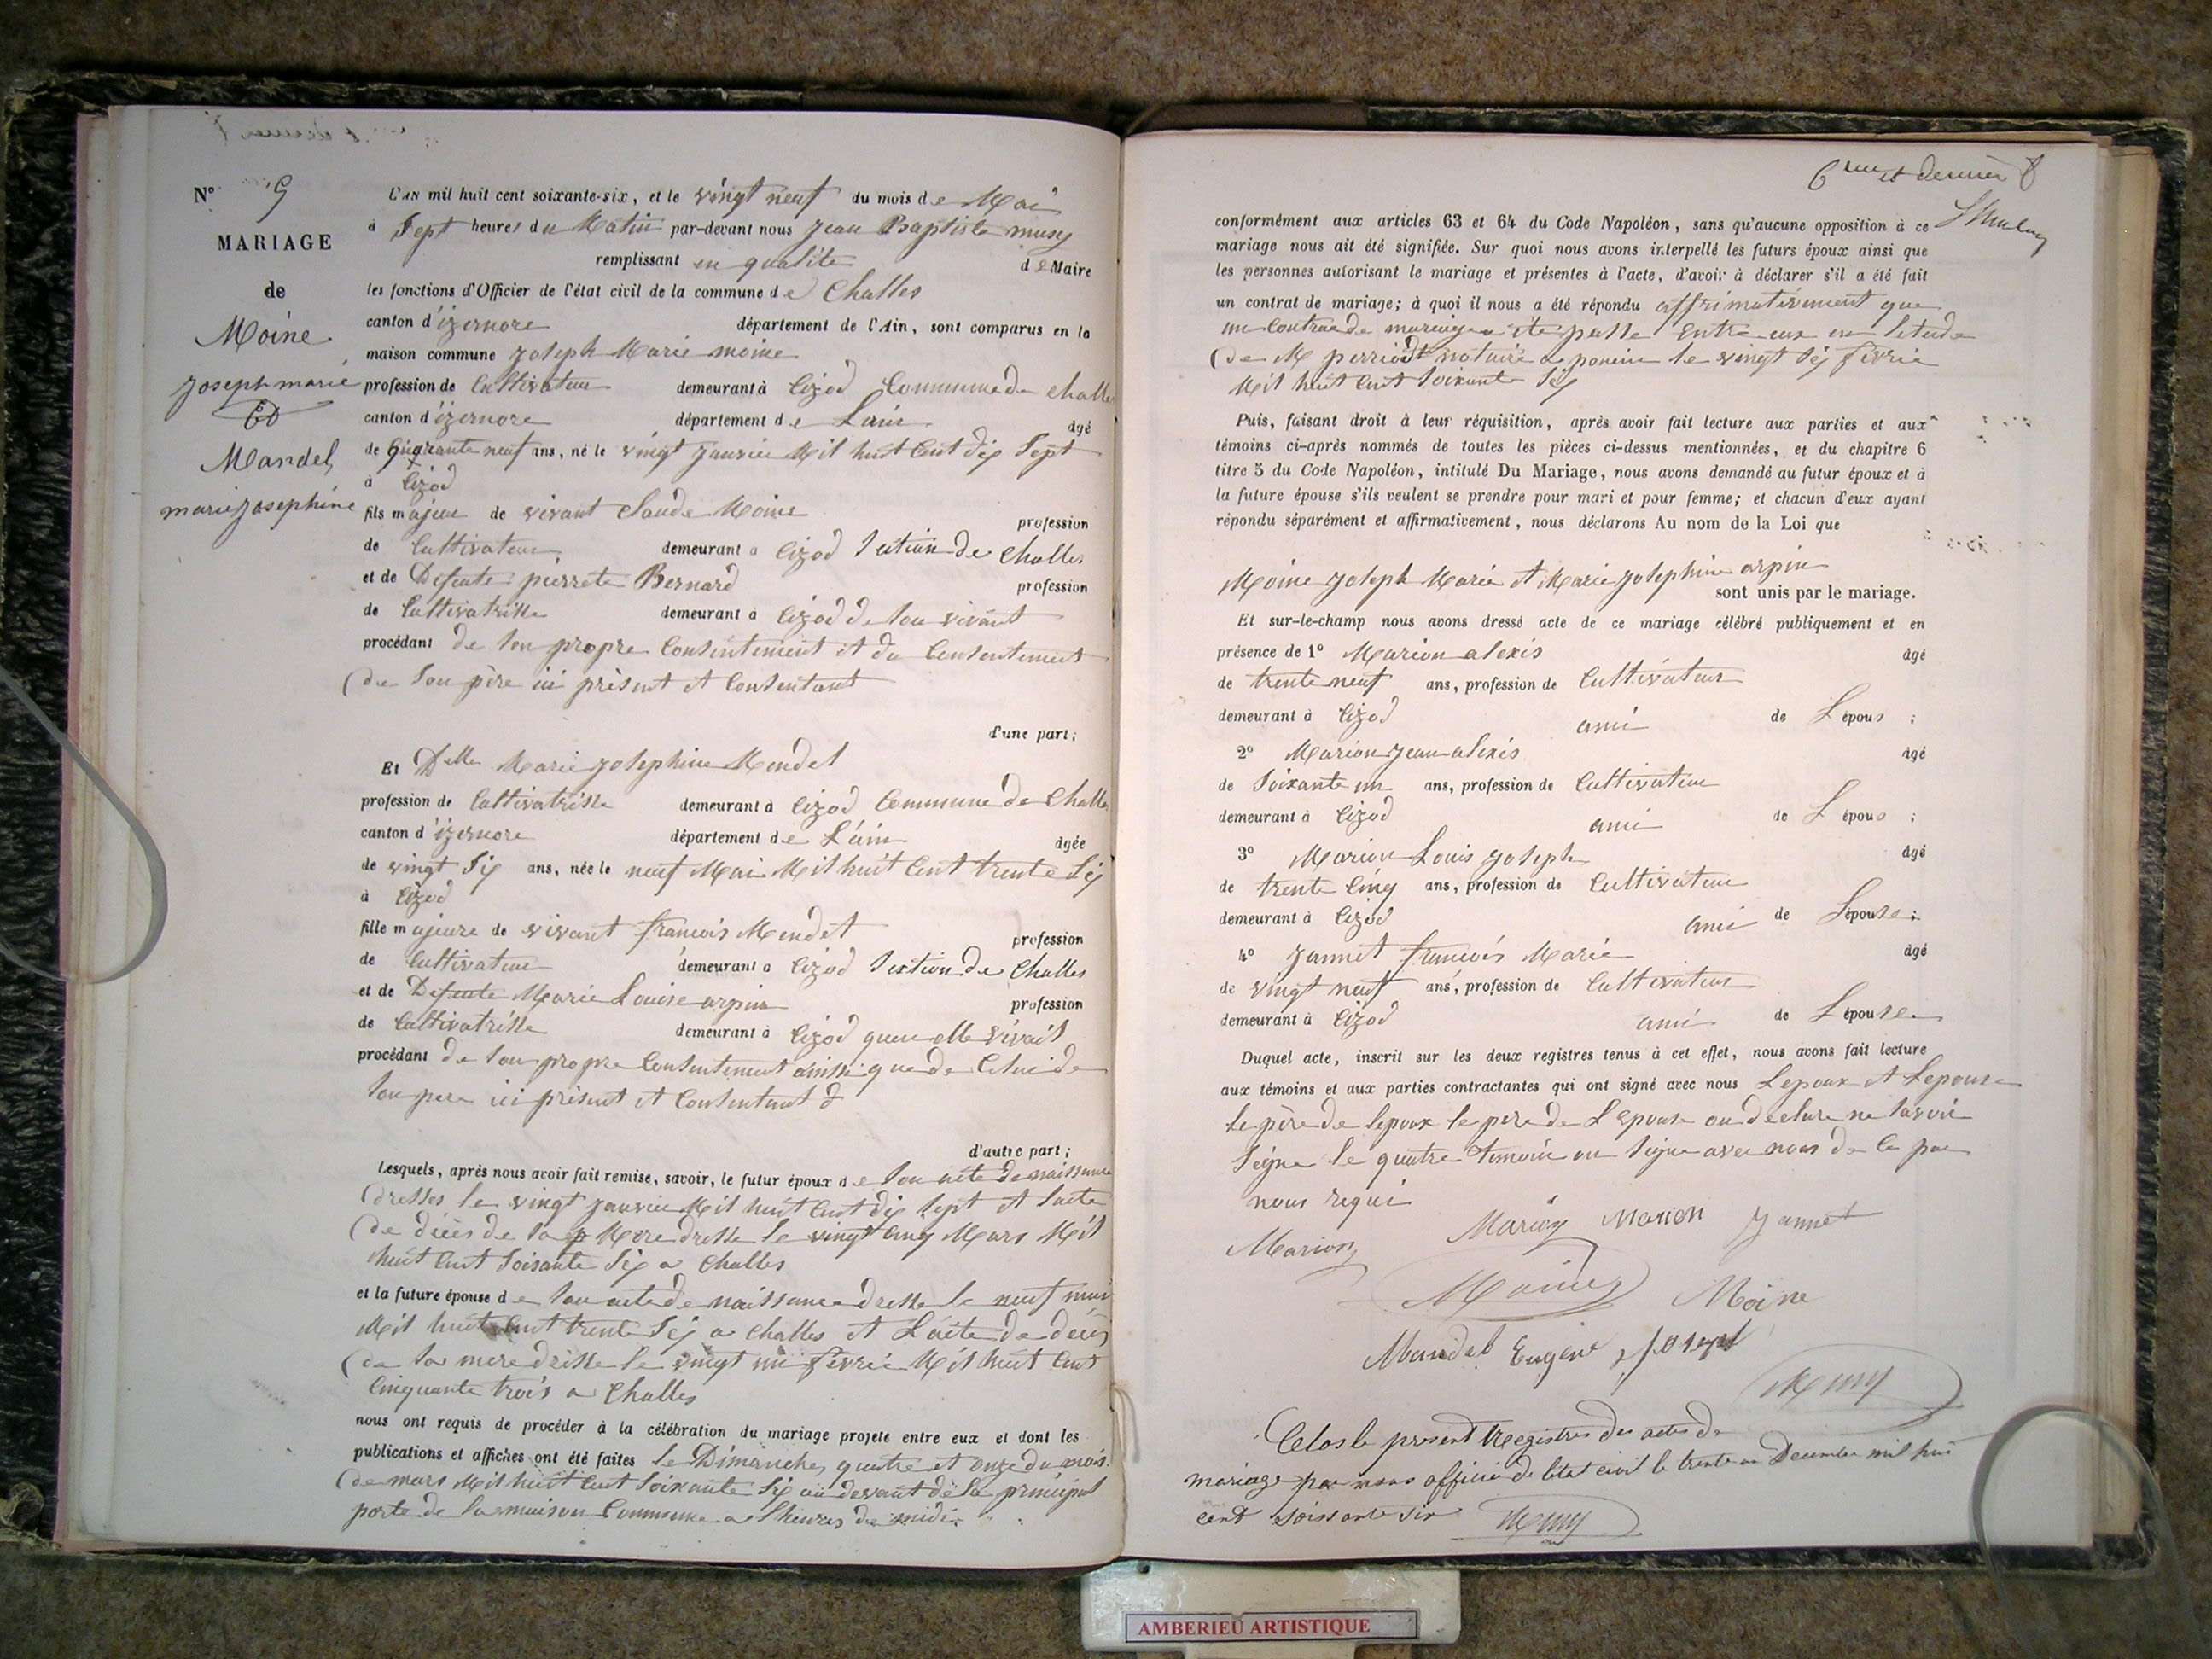 N° 9
MARIAGE
de
Moine
joseph marie
Et
Mandel
marie josephine
L'AN mil huit cent soixante-six, et le vingt neuf du mois de Mai
à Sept heures du Matin par-devant nous jean Baptiste musy
remplissant en qualité de Maire
les fonctions d'Officier de l'état civil de la commune de Challes
canton d'izernore département de l'Ain, sont comparus en la
maison commune joseph Marie moine
profession de Cultivateur demeurant à Cizod Commune de Challe
canton d'izernore département de Lain âgé
de quarante neuf ans, né le vingt janvier Mil huit Cent dix Sept
à Cizod
fils majeur de vivant Claude Moine profession
de Cultivateur demeurant a Cizod Section de Challes
et de Defunte pierrete Bernard profession
de Cultivatrisse demeurant à Cizod de son vivant
procédant de son propre Consentement et du Consentement
de son père ici présent et Consentant
d'une part;
Et Delle Marie josephine Mendel
profession de Cultivatrisse demeurant à Cizod Commune de Challe
canton d'izernore département de L'ain âgée
de vingt Six ans, née le neuf Mai Mil huit Cent trente Six
à Cizod
fille majeure de vivant francois Mendet profession
de Cultivateur demeurant a Cizod Section de Challes
et de Defunte Marie Louise arpin profession
de Cultivatrisse demeurant à Cizod quen elle vivait
procédant de son propre Consentement ainssi que de Celui de
son pere ici présent et Consentant
d'autre part;
Lesquels, après nous avoir fait remise, savoir, le futur époux de son acte de naissance
dresses le vingt janvier Mil huit Cent dix sept et lacte
de décès de sa Mere dresse le vingt Cinq Mars Mil
huit Cent Soisante Six a Challes
et la future épouse de son acte de naissance dresse le neuf mai
Mil huit Cent trente Six a Challes et Lacte de décès
de sa mere dresse le vingt un février Mil huit Cent
Cinquante trois a Challes
nous ont requis de procéder à la célébration du mariage projeté entre eux et dont les
publications et affiches ont été faites le Dimanche, quatre et onze du mois
de mars Mil huit Cent Soixante Six au devant de la principal
porte de la maison Commune a lheures de midi
6me et dernier
conformément aux articles 63 et 64 du Code Napoléon, sans qu'aucune opposition à ce
mariage nous ait été signifiée. Sur quoi nous avons interpellé les futurs époux ainsi que
les personnes autorisant le mariage et présentes à l'acte, d'avoir à déclarer s'il a été fait
un contrat de mariage; à quoi il nous a été répondu affrimativement que
un Contrac de mariage a été passe entre eux en letude
de M perriodt notaire a poncin le vingt Six févrie
Mil huit Cent Soixante Six
Puis, faisant droit à leur réquisition, après avoir fait lecture aux parties et aux
témoins ci-après nommés de toutes les pièces ci-dessus mentionnées, et du chapitre 6
titre 5 du Code Napoléon, intitulé Du Mariage, nous avons demandé au futur époux et à
la future épouse s'ils veulent se prendre pour mari et pour femme; et chacun d'eux ayant
répondu séparément et affirmativement, nous déclarons Au nom de la Loi que
Moine joseph Marie et Marie josephine arpin
sont unis par le mariage.
Et sur-le-champ nous avons dressé acte de ce mariage célébré publiquement et en
présence de 1° Marion alexis âgé
de trente neuf ans, profession de Cultivateur
demeurant à Cizod ami de L épous ;
2° Marion jean alexis âgé
de Soixante un ans, profession de Cultivateur
demeurant à Cizod ami de L épous ;
3° Marion Louis joseph âgé
de trente Cinq ans, profession de Cultivateur
demeurant à Cizod ami de Lépouse ;
4° jannet francois Marie âgé
de vingt neuf ans, profession de Cultivateur
demeurant à Cizod ami de L épouse
Duquel acte, inscrit sur les deux registres tenus à cet effet, nous avons fait lecture
aux témoins et aux parties contractantes qui ont signé avec nous Lepoux et Lepouse
le père de lepoux le pere de Lepouse on declare ne savoir
Seigne le quatre temoin on signe avec nous de ce par
nous requi
Marion Marion Marion jannet
Moine Moine
Mandel Eugène joseph
Musy
Clos le present Registres des actes de
mariage par nous officier de létat civil le trente un Decembre mil huit
cent soissante six Musy
AMBERIEU ARTISTIQUE